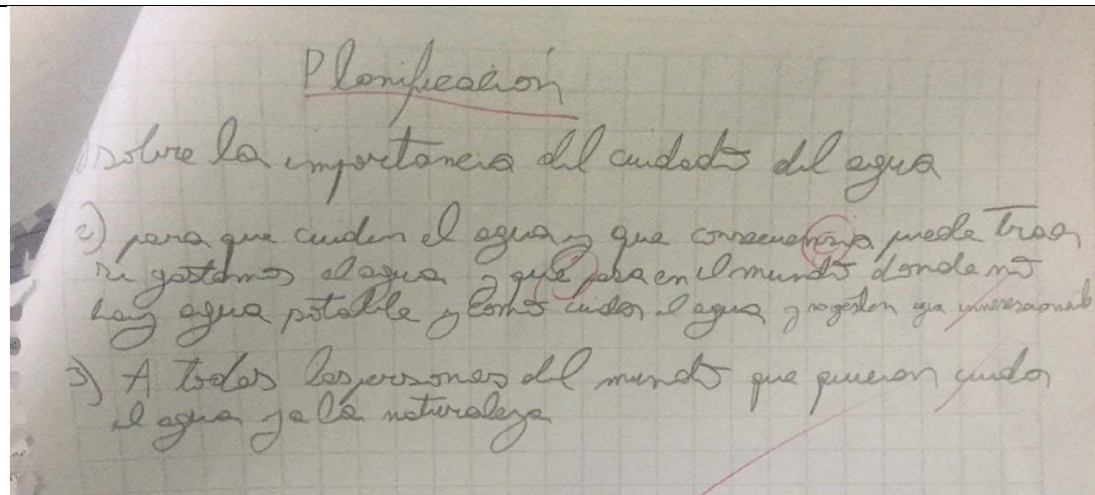 Planificación
1) sobre la importancia del cuidado del agua
2) para que cuiden el agua y que consecuencia puede traer
si gastamos el agua y que pasa en el mundo donde no
hay agua potable y como cuidar el agua y no gasten agua
3) A todas las personas del mundo que quieran cuidar
el agua y a la naturaleza